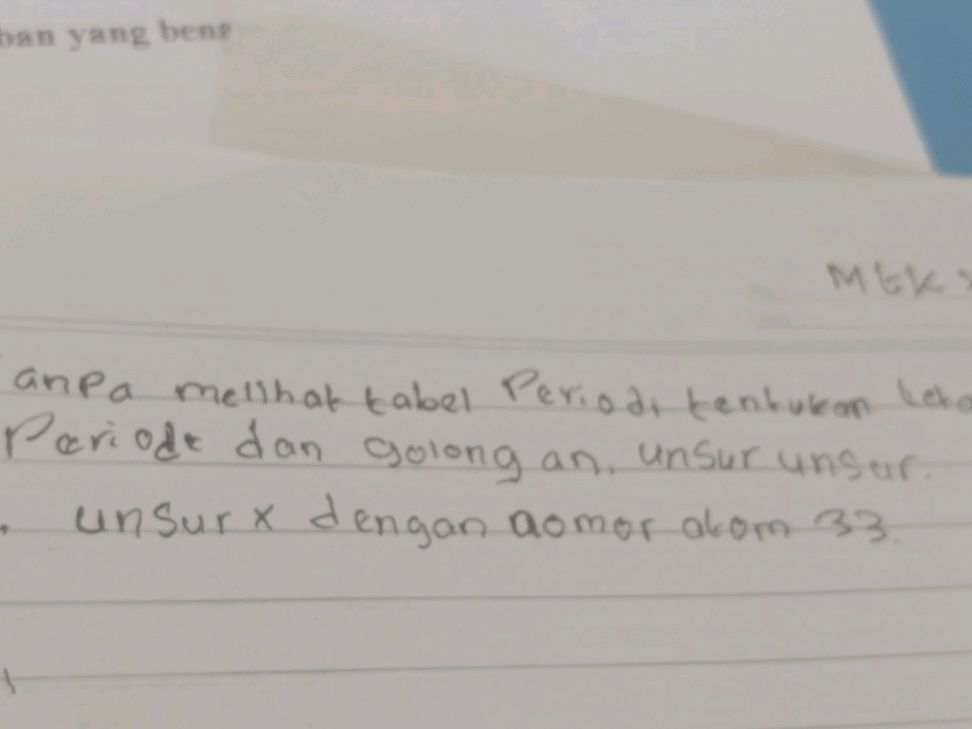 ban yang bena
MtK
anpa melihat tabel Periodi tentukan leta
Periode dan golongan. unsur unsur.
unsur x dengan nomor atom 33.